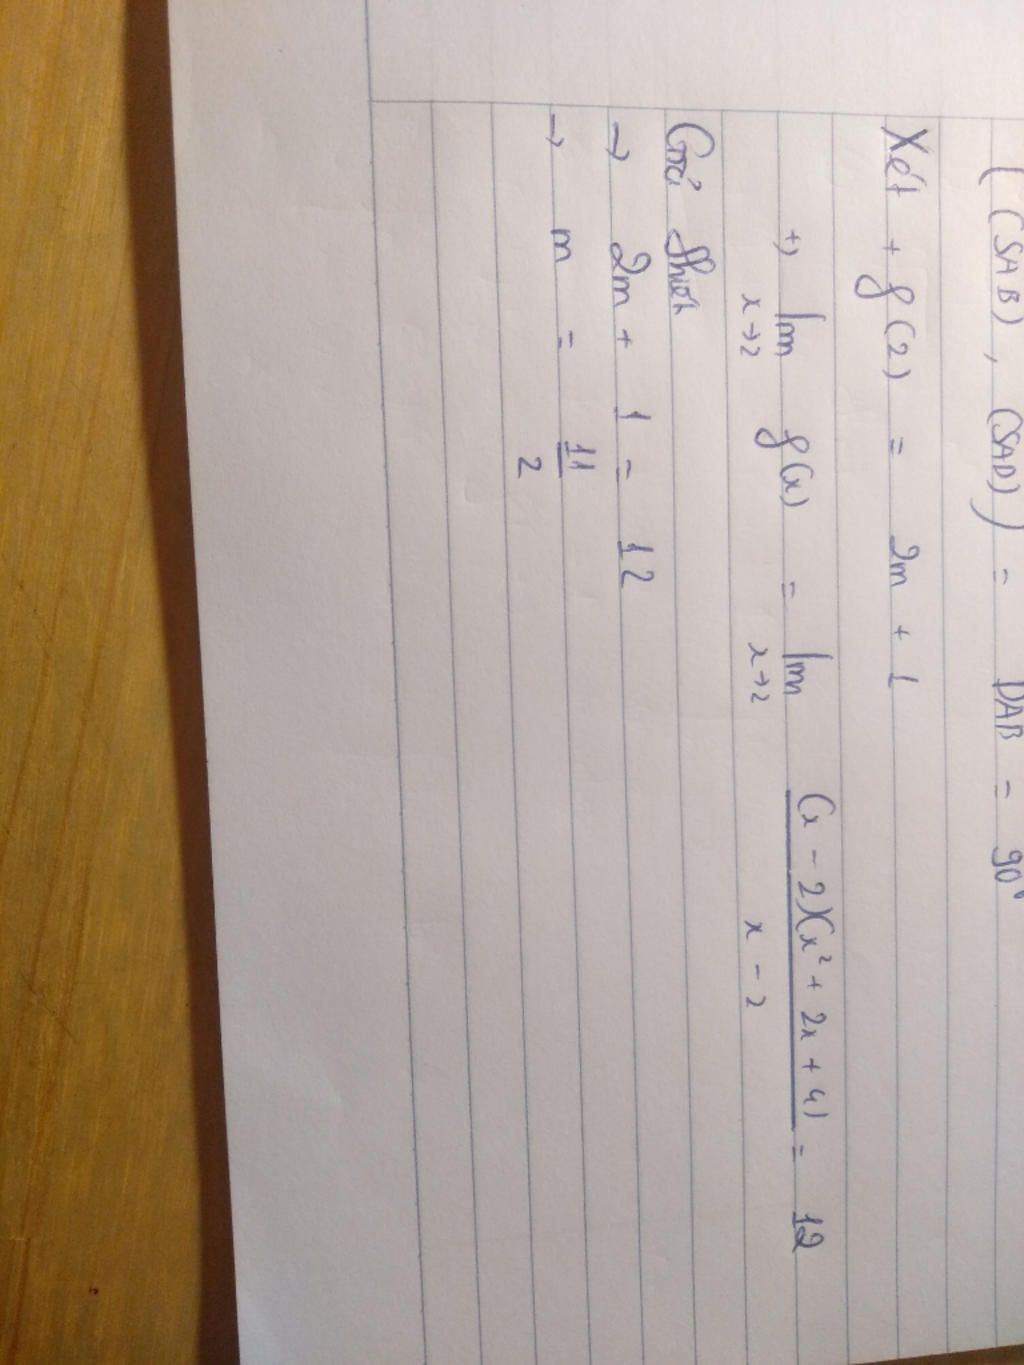 ((SAB), (SAD)) = DAB = 90°
Xét + f(2) = 2m + 1
+) lim x→2 f(x) = lim x→2 (x - 2)(x² + 2x + 4) / x - 2 = 12
Giả thiết
→ 2m + 1 = 12
→ m = 11/2